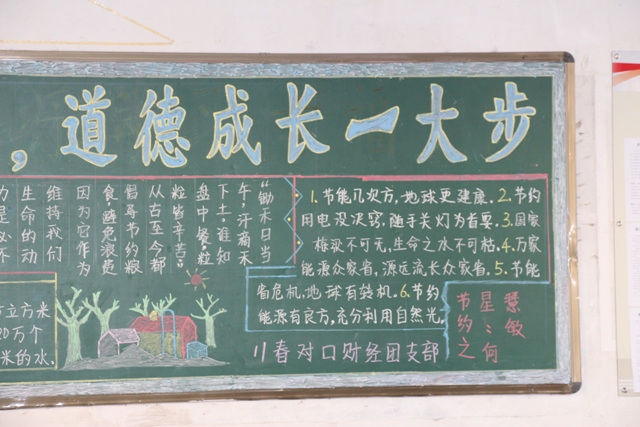 ，道德成长一大步
“锄禾日当
午，汗滴禾
下土。谁知
盘中餐，粒
粒皆辛苦。”
从古至今都
倡导节约粮
食，避免浪费
因为它作为
维持我们
生命的动
力是必不
1.节能几次方，地球更健康。2.节约
用电没决窍，随手关灯为首要。3.国家
栋梁不可无，生命之水不可枯。4.万家
能源众家省，源远流长众家省。5.节能
省危机，地球有转机。6.节约
能源有良方，充分利用自然光。
立方米
20万个
米的水.
川春对口财经团支部
慧敏
星星何
节约之